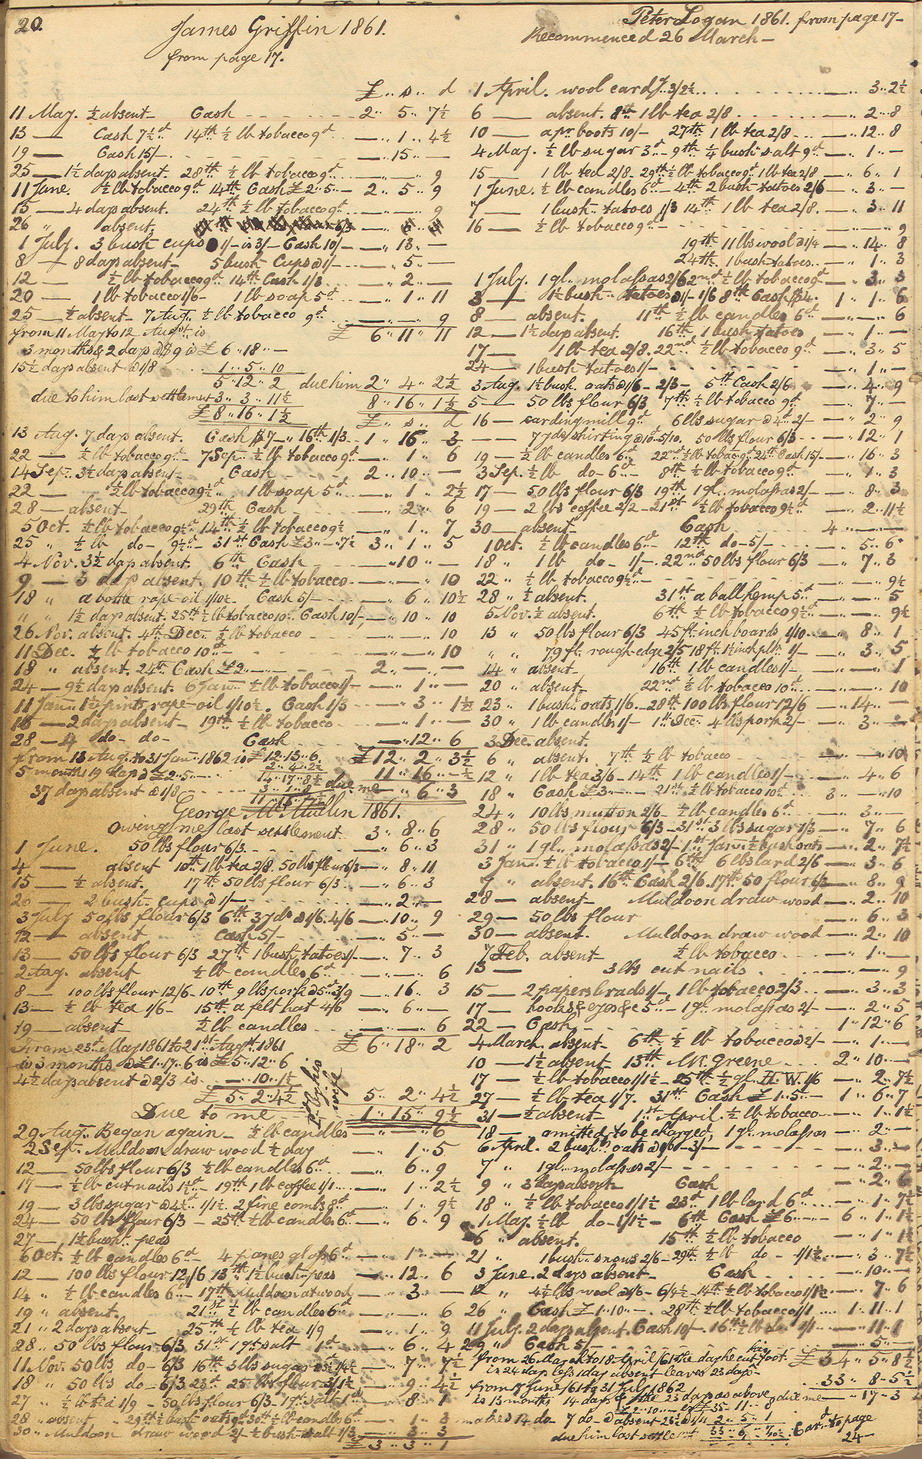 20.
James Griffin 1861.
from page 17.
£ .. s .. d
11 May. ½ absent Cash 2 .. 5 .. 7½
13 — Cash 7½d 14th ½ lb tobacco 9d — .. 1 .. 4½
19 — Cash 15/- — .. 15 .. —
25 — 1½ days absent. 28th ½ lb tobacco 9d — .. — .. 9
11 June. ½ lb tobacco 9d 14th Cash £2..5.. — 2 .. 5 .. 9
15 — 4 days absent. 24th ½ lb tobacco 9d — .. — .. 9
26 " absent
1 July. 3 bush cups 1/- is 3/- Cash 10/- — .. 13 .. —
8 — 8 days absent — 5 bush cups @ 1/- — .. 5 .. —
12 — ½ lb tobacco 9d 14th Cash 1/3 — .. 2 .. —
20 — 1 lb tobacco 1/6 - 1 lb soap 5d — .. 1 .. 11
25 — ½ absent - 7 Aug. ½ lb tobacco 9d — .. — .. 9
from 11 May to 12 August is £ 6 .. 11 .. 11
3 months & 2 days @ is £ 6 .. 18 .. —
15½ days absent @ 1/8 1 .. 5 .. 10
5 .. 12 .. 2 due him 2 .. 4 .. 2½
due to him last settlement 3 .. 3 .. 11½ 8 .. 16 .. 1½
£ 8 .. 16 .. 1½ £ .. s .. d
13 Aug. 7 days absent. Cash 16th 1/3 1 .. 16 .. 3
22 — ½ lb tobacco 9d - 7 Sep. ½ lb tobacco 9d — .. 1 .. 6
14 Sep. 3½ days absent — Cash 2 .. 10 .. —
22 — ½ lb tobacco 9½d 1 lb soap 5d — .. 1 .. 2½
28 — absent 29th Cash — .. 2 .. 6
5 Oct. ½ lb tobacco 9½d 14th ½ lb tobacco 9½ — .. 1 .. 7
25 " ½ lb do - 9½d - 31st Cash £3 3 .. 1 .. 5
4 Nov. 3½ days absent. 6th Cash — .. 10 .. —
9 — 3 days absent. 10th ½ lb tobacco — .. — .. 10
18 " a bottle rape oil 1/10½. Cash 5/- — .. 6 .. 10½
" " 1½ days absent. 25th ½ lb tobacco 10d Cash 10/ — .. 10 .. 10
26 Nov. absent. 4th Dec. ½ lb tobacco — .. — .. 10
11 Dec. ½ lb tobacco 10d — .. — .. 10
18 " absent. 24th Cash £2 2 .. — .. —
24 — 9½ days absent. 6 Jan. ½ lb tobacco 1/- — .. 1 .. —
11 Jan. 1½ pints rape oil 1/10½. Cash 1/3 — .. 3 .. 1½
16 — 2 days absent - 19th ½ lb tobacco — .. 1 .. —
28 — 4 do - do - Cash — .. 12 .. 6
from 13 Aug. to 31 Jan. 1862 is £ 12 .. 13 .. 6 £ 12 .. 2 .. 3½
5 months 19 days @ £2..5.. — 11 .. 16 ..
37 days absent @ 1/8 due me — .. 6 .. 3
George McMullin 1861.
owing me last settlement 3 .. 8 .. 6
1 June. 50 lbs flour 6/3 — .. 6 .. 3
4 — absent 10th 1 lb tea 2/8. 50 lbs flour 6/3 — .. 8 .. 11
15 — ½ absent. 17th 50 lbs flour 6/3 — .. 6 .. 3
20 — 2 bush. cups @ 1/- — .. 2 .. —
3 July 50 lbs flour 6/3 6th 3 yds @ 1/6. 4/6 — .. 10 .. 9
12 — absent Cash 5/- — .. 5 .. —
13 — 50 lbs flour 6/3 27th 1 bush. tatoes 1/- — .. 7 .. 3
2 Aug. absent ½ lb candles 6d — .. — .. 6
8 — 100 lbs flour 12/6 - 10th 9 lbs pork @ 5d 3/9 — .. 16 .. 3
13 — ½ lb tea 1/6 - 15th a felt hat 4/6 — .. 6 .. —
19 — absent ½ lb candles — .. — .. 6
From 23rd May 1861 to 21st Augst 1861 £ 6 .. 18 .. 2
is 3 months @ £1..17..6 is £ 5 .. 12 .. 6
4½ days absent @ 2/3 is — .. 10 .. 1½
£ 5 .. 2 .. 4½ 5 .. 2 .. 4½
Due to me 1 .. 15 .. 9½
pd by his wife
29 Aug. Began again - ½ lb candles — .. — .. 6
2 Sep. Muldoon draw wood ½ day — .. 1 .. 5
12 — 50 lbs flour 6/3 ½ lb candles 6d — .. 6 .. 9
17 — ½ lb cut nails 1½d - 19th 1 lb coffee 1/1 — .. 1 .. 2½
19 — 3 lbs sugar @ 4½d 1/1½. 2 fine combs 8d — .. 1 .. 9½
24 — 50 lbs flour 6/3 - 25th ½ lb candles 6d — .. 6 .. 9
27 — 1½ bush. peas
6 Oct. ½ lb candles 6d 4 panes glass 6d — .. 1 .. —
12 — 100 lbs flour 12/6 13th 1½ bush. peas — .. 12 .. 6
14 " ½ lb candles 6 — 17th Muldoon at wood — .. 3 .. —
19 " absent. 21st ½ lb candles 6d — .. — .. 6
21 " 2 days absent - 25th ½ lb tea 1/9 — .. 1 .. 9
28. 50 lbs flour 6/3 31st salt 1d — .. 6 .. 4
11 Nov. 50 lbs do - 6/3 16th 3 lbs sugar 1/1½ — .. 7 .. 7½
18 " 50 lbs do - 6/3 23d 25 lbs flour 3/1½ — .. 9 .. 4½
27 " ½ lb tea 1/9 - 50 lbs flour 6/3 - salt 1d — .. 8 .. 1
28 " absent - 29th ½ bush oats 9d 30th ½ lb candles 6d — .. 1 .. 3
30 " Muldoon draw wood 2/- ½ bush. salt 1/3 — .. 3 .. 3
£ 3 .. 3 .. 1
Peter Logan 1861. from page 17-
Recommenced 26 March -
1 April. wool cards 3/2½ — .. 3 .. 2½
6 — absent. 8th 1 lb tea 2/8 — .. 2 .. 8
10 — apr boots 10/- 27th 1 lb tea 2/8 — .. 12 .. 8
4 May. ½ lb sugar 3d - 9th ¼ bush salt 9d — .. 1 .. —
15 — 1 lb tea 2/8. 29th ½ lb tobacco 9d 1 lb tea 2/8 — .. 6 .. 1
1 June. ½ lb candles 6d - 4th 2 bush tatoes 2/6 — .. 3 .. —
" 1 bush tatoes 1/3 14th 1 lb tea 2/8 — .. 3 .. 11
16 — ½ lb tobacco 9d — .. — .. 9
19th 11 lbs wool @ 1/4 — .. 14 .. 8
24th 1 bush tatoes — .. 1 .. 3
1 July. 1 gl. molassas 2/6 2nd ½ lb tobacco 9d — .. 3 .. 3
3 — 1½ bush tatoes @ 1/- 1/6 8th Cash 1 .. 1 .. 6
8 — absent. 11th ½ lb candles 6 — .. — .. 6
12 — 1½ days absent. 16th 1 bush tatoes — .. 1 .. —
17 — 1 lb tea 2/8. 22nd ½ lb tobacco 9d — .. 3 .. 5
24 — 1 bush tatoes 1/- — .. 1 .. —
3 Aug. 1½ bush oats @ 1/6 - 2/3 - 5th Cash 2/6 — .. 4 .. 9
5 — 50 lbs flour 6/3 7th ½ lb tobacco 9d — .. 7 .. —
16 — carding mill 9d 6 lbs sugar @ 4d 2/- — .. 2 .. 9
— 7 yds shirting @ 10d 5/10. 50 lbs flour 6/3 — .. 12 .. 1
19 — ½ lb candles 6d 22nd ½ lb tobac 9d 24th Cash 15/- — .. 16 .. 3
3 Sep. ½ lb do - 6d 8th ½ lb tobacco 9d — .. 1 .. 3
17 — 50 lbs flour 6/3 19th 1 gl. molassas 2/- — .. 8 .. 3
19 — 2 lbs coffee 2/2 - 21st ½ lb tobacco 9½d — .. 2 .. 11½
30 — absent Cash 4 .. — .. —
1 Oct. ½ lb candles 6d 12th do - 5/- — .. 5 .. 6
18 " 1 lb do - 1/- 22nd 50 lbs flour 6/3 — .. 7 .. 3
22 " ½ lb tobacco 9½d — .. — .. 9½
28 " ½ absent. 31st a ball hemp 5d — .. — .. 5
5 Nov. ½ absent. 6th ½ lb tobacco 9½d — .. — .. 9½
13 " 50 lbs flour 6/3 45 ft. inch boards 1/10 — .. 8 .. 1
" " 79 ft. rough edge 2/5 18 ft 1½ inch plk 1/- — .. 3 .. 5
14 " absent 16th 1 lb candles 1/- — .. 1
20 " absent 22nd ½ lb tobacco 10d — .. — .. 10
23 " 1 bush. oats 1/6 - 28th 100 lbs flour 12/6 — .. 14 .. —
30 " 1 lb candles 1/- 1st Dec. 4 lbs pork 2/- — .. 3 .. —
3 Dec. absent.
6 " absent. 7th ½ lb tobacco — .. — .. 10
12 " 1 lb tea 3/6 - 14th 1 lb candles 1/- — .. 4 .. 6
18 " Cash £3 — 21st ½ lb tobacco 10d 3 .. — .. 10
24 " 10 lbs mutton 2/6 - ½ lb candles 6d — .. 3 .. —
28 " 50 lbs flour 6/3 - 31st 3 lbs sugar 1/3 — .. 7 .. 6
31 " 1 gl. molassas 2/- 1st Jan. ½ bush oats — .. 2 .. 7½
3 Jan. ½ lb tobacco 1/- 6th 6 lbs lard 2/6 — .. 3 .. 6
7 " absent. 16th Cash 2/6. 17th 50 flour 6/3 — .. 8 .. 9
28 — absent Muldoon draw wood — .. 2 .. 10
29 — 50 lbs flour — .. 6 .. 3
30 — absent. Muldoon draw wood — .. 2 .. 10
7 Feb. absent ½ lb tobacco — .. 1 .. —
13 — 3 lbs cut nails — .. — .. 9
15 — 2 papers brads 1/- 1 lb tobacco 2/3 — .. 3 .. 3
17 — hooks & eyes &c 5d - 1 gl. molassas 2/- — .. 2 .. 5
22 — Cash 1 .. 12 .. 6
4 March. absent 6th ½ lb tobacco @ 2/- — .. 1 .. —
10 — 1½ absent 13th Mr Greene 2 .. 10 .. —
17 — ½ lb tobacco 1/1½ - 25th ½ gl. H. W. 1/6 — .. 2 .. 7½
27 — ½ lb tea 1/7. 31st Cash £1..5.. — 1 .. 6 .. 7
31 — ½ absent 1st April ½ lb tobacco — .. 1 .. 1½
18 — omitted to be charged, 1 gl. molassas — .. 2 .. —
6 April. 2 bush. oats @ 1/6 - 3/- — .. 3 .. —
7 " 1 gl. molassas 2/- — .. 2 .. —
9 " 3 days absent Cash — .. 2 .. 6
18 " ½ lb tobacco 1/1½ 23d 1 lb lard 6d — .. 1 .. 7½
1 May. ½ lb do - 1/1½ - 6th Cash £6 6 .. 1 .. 1½
6 " absent. 15th ½ lb tobacco — .. 1 .. 1½
21 " 1 bush. 2/6 - 29th ½ lb do - 1/1½ — .. 3 .. 7½
3 June. 2 days absent Cash — .. 10 .. —
12 " 4½ lbs wool - 6/4½ - 14th ½ lb tobacco 1/1½ — .. 7 .. 6
26 " Cash £1..10.. — 28th ½ lb tobacco 1/1 1 .. 11 .. 1
11 July. 2 days absent. Cash 10/- 16th ½ lb do 1/1 — .. 11 .. 1
29 " Cash 5/- — .. 5 .. —
from 26 March to 18 April /61 the day he cut foot £ 34 .. 5 .. 8½
is 24 days less 1 day absent leaves 23 days - 33 .. 8 .. 5½
from 7 June /61 to 31 July 1862
is 13 months 14 days & the 23 days as above due me — .. 17 .. 3
makes 14 do 7 do
due him last settlement
Card to page 24